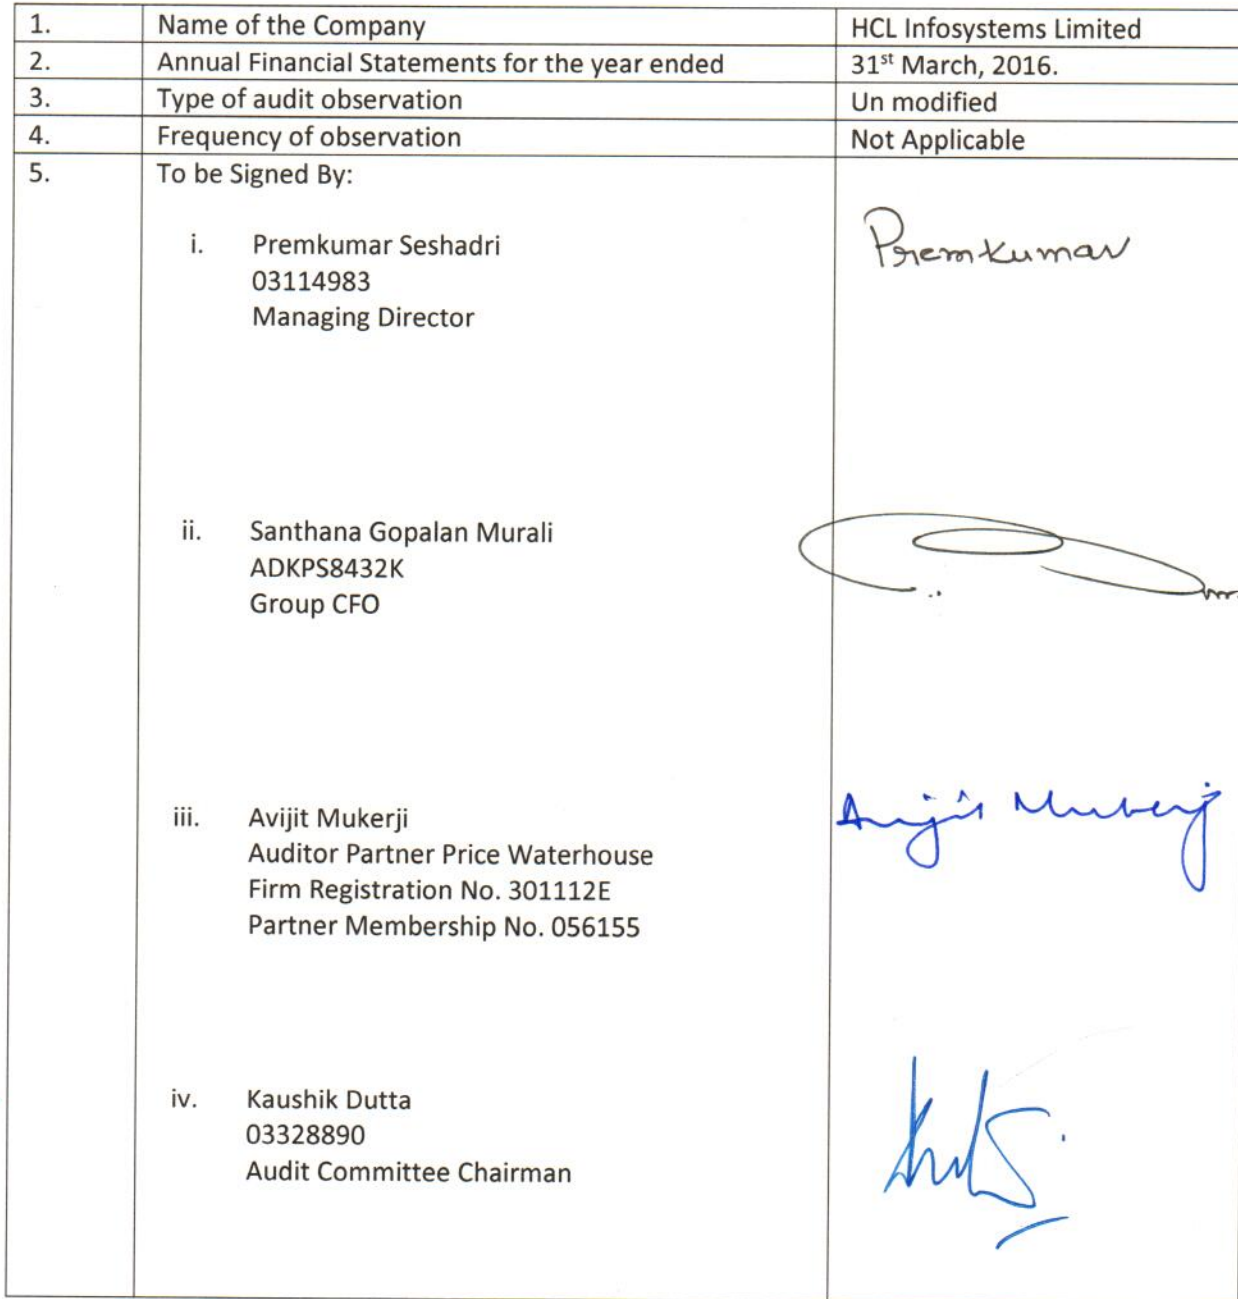 1. Name of the Company HCL Infosystems Limited
2. Annual Financial Statements for the year ended 31st March, 2016.
3. Type of audit observation Un modified
4. Frequency of observation Not Applicable
5. To be Signed By:
i. Premkumar Seshadri Premkumar
03114983
Managing Director
ii. Santhana Gopalan Murali
ADKPS8432K
Group CFO
iii. Avijit Mukerji Avijit Mukerji
Auditor Partner Price Waterhouse
Firm Registration No. 301112E
Partner Membership No. 056155
iv. Kaushik Dutta
03328890
Audit Committee Chairman